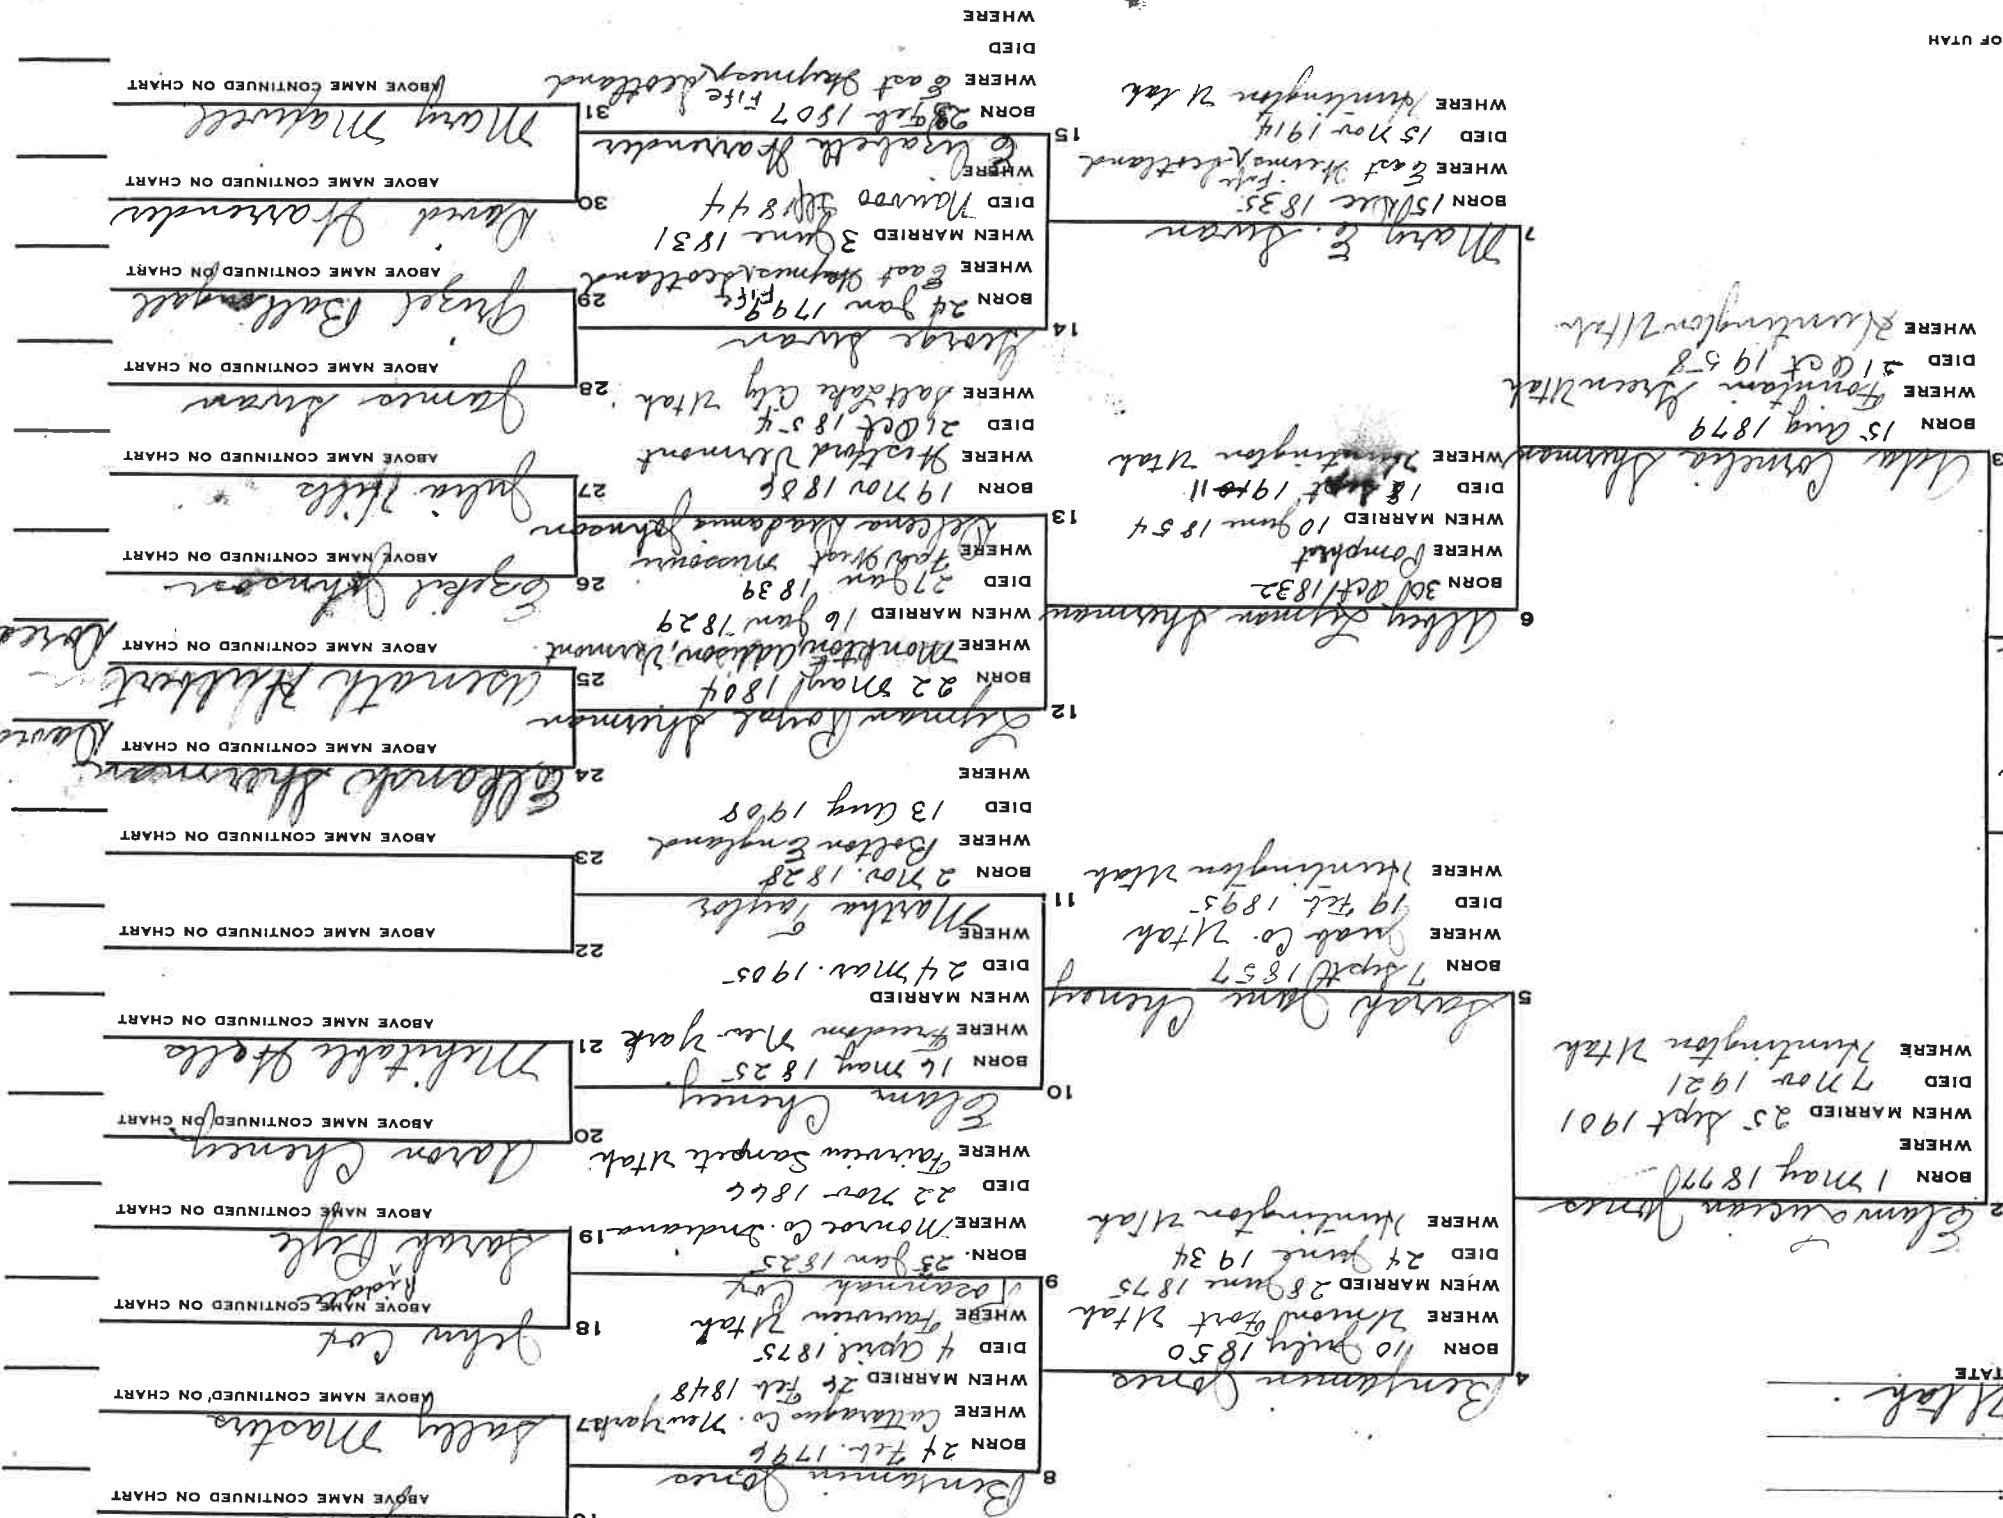 Utah
TATE
2
Elam Lucian Jones
BORN 1 May 1877
WHERE
WHEN MARRIED 25 Sept 1901
DIED 7 Nov 1921
WHERE Huntington Utah
3
Ada Cornelia Sherman
BORN 15 Aug 1879
WHERE Fountain Green Utah
DIED 21 Oct 1958
WHERE Huntington Utah
OF UTAH
4
Benjamin Jones
BORN 10 July 1850
WHERE Union Fort Utah
WHEN MARRIED 28 June 1875
DIED 24 June 1934
WHERE Huntington Utah
5
Sarah Jane Cheney
BORN 7 Sept 1857
WHERE Juab Co. Utah
DIED 19 Feb. 1895
WHERE Huntington Utah
6
Albey Lyman Sherman
BORN 30 Oct 1832
WHERE Pomphret
WHEN MARRIED 10 June 1854
DIED 18 Sept 1911
WHERE Huntington Utah
7
Mary E. Swan
BORN 15 Dec 1835
WHERE East Wemys, Fife Scotland
DIED 15 Nov 1914
WHERE Huntington Utah
8
Benjamin Jones
BORN 24 Feb. 1796
WHERE Cattaragus Co. New York
WHEN MARRIED 26 Feb 1848
DIED 4 April 1875
WHERE Fairview Utah
9
Rosannah Cox
BORN. 25 Jan 1825
WHERE Monroe Co. Indiana
DIED 22 Nov 1866
WHERE Fairview Sanpete Utah
10
Elam Cheney
BORN 16 May 1825
WHERE Freedom New York
WHEN MARRIED
DIED 24 Mar. 1905
WHERE
11
Martha Taylor
BORN 2 Nov. 1828
WHERE Bolton England
DIED 13 Aug 1908
WHERE
12
Lyman Royal Sherman
BORN 22 May 1804
WHERE Monkton, Addison, Vermont
WHEN MARRIED 16 Jan 1829
DIED 27 Jan 1839
WHERE Far West Missouri
13
Delcena Diadamia Johnson
BORN 19 Nov 1806
WHERE Westford Vermont
DIED 21 Oct 1854
WHERE Salt Lake City Utah
14
George Swan
BORN 24 Jan 1799
WHERE East Waymes, Fife Scotland
WHEN MARRIED 3 June 1831
DIED Nauvoo Ill 1844
WHERE
15
Elizabeth Harrender
BORN Feb 1807
WHERE East Haymes, Fife Scotland
DIED
WHERE
ABOVE NAME CONTINUED ON CHART
17
Sally Masters
ABOVE NAME CONTINUED ON CHART
18
John Cox
ABOVE NAME CONTINUED ON CHART
19
Sarah Riddle Pyle
ABOVE NAME CONTINUED ON CHART
20
Aaron Cheney
ABOVE NAME CONTINUED ON CHART
21
Mehitable Wells
ABOVE NAME CONTINUED ON CHART
22
ABOVE NAME CONTINUED ON CHART
23
ABOVE NAME CONTINUED ON CHART
24
Elkanah Sherman
ABOVE NAME CONTINUED ON CHART
25
Asenath Hulbert
ABOVE NAME CONTINUED ON CHART
26
Ezekil Johnson
ABOVE NAME CONTINUED ON CHART
27
Julia Hills
ABOVE NAME CONTINUED ON CHART
28
James Swan
ABOVE NAME CONTINUED ON CHART
29
Grizel Ballingall
ABOVE NAME CONTINUED ON CHART
30
David Harrender
ABOVE NAME CONTINUED ON CHART
31
Mary Maxwell
ABOVE NAME CONTINUED ON CHART